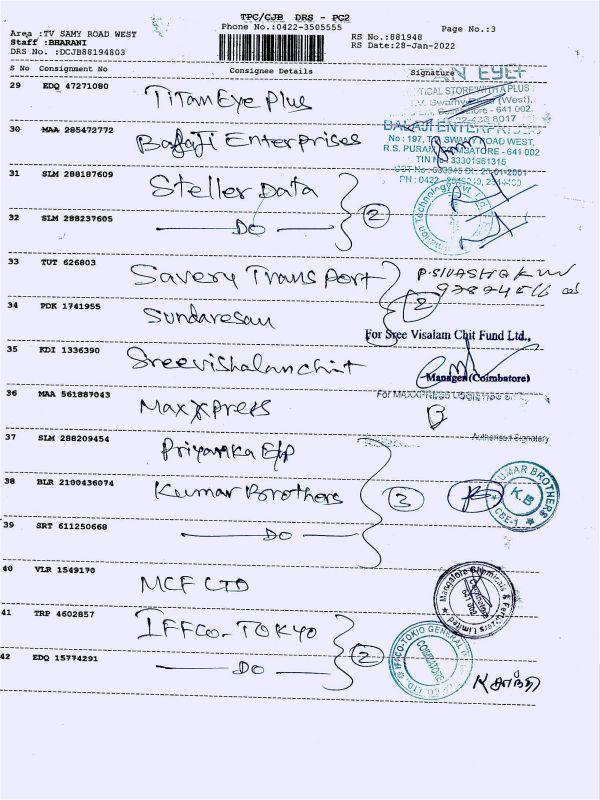 TPC/CJB DRS - PG2
Phone No.:0422-3505555
Page No.:3
Area :TV SAMY ROAD WEST
Staff :BHARANI
DRS No. :DCJB88194803
RS No.:881948
RS Date:28-Jan-2022
S No Consignment No Consignee Details Signature
29 EDQ 47271080 Titan Eye Plus
30 MAA 285472772 Balaji Enterprises
BALAJI ENTERPRISES
No : 197, T.V. SWAMY ROAD WEST,
R.S. PURAM, COIMBATORE - 641 002
TIN No : 33301981315
31 SLM 288187609 Steller Data
2
32 SLM 288237605 DO
33 TUT 626803 Savery Transport
2
34 PDK 1741955 Sundaresan
For Sree Visalam Chit Fund Ltd.,
35 KDI 1336390 Sreevishalamchit
Manager (Coimbatore)
36 MAA 561887043 Maxxpress
Authorised Signatory
37 SLM 288209454 Priyanka E/p
38 BLR 2100436074 Kumar Brothers
3
KUMAR BROTHERS
K.B
CBE-1
39 SRT 611250668 DO
40 VLR 1549170 MCF LTD
Mangalore Chemicals & Fertilizers Limited
41 TRP 4602857 IFFCO-TOKYO
2
IFFCO-TOKIO GENERAL
COIMBATORE
42 EDQ 15774291 DO